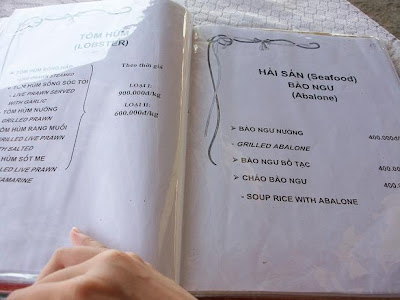 TÔM HÙM
(LOBSTER)
TÔM HÙM
Theo thời giá
PRAWN STEAMED
TÔM HÙM SỐNG SỐC TỎI
- LIVE PRAWN SERVED
WITH GARLIC
TÔM HÙM NƯỚNG
GRILLED PRAWN
TÔM HÙM RANG MUỐI
GRILLED LIVE PRAWN
WITH SALTED
HÙM SỐT ME
LIVE PRAWN
TAMARINE
LOẠI I:
900.000đ/kg
LOẠI II:
600.000đ/kg
HẢI SẢN (Seafood)
BÀO NGƯ
(Abalone)
➢ BÀO NGƯ NƯỚNG 400.000đ
- GRILLED ABALONE
➢ BÀO NGƯ BỔ TẠC 400.0
➢ CHÁO BÀO NGƯ 400.
- SOUP RICE WITH ABALONE